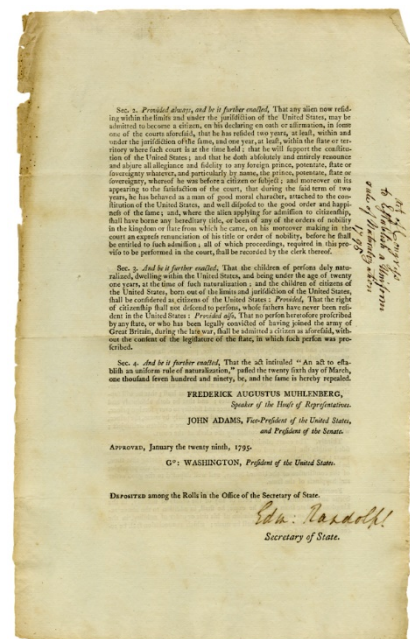 Sec. 2. Provided always, and be it further enacted, That any alien now resid-
ing within the limits and under the jurisdiction of the United States, may
be admitted to become a citizen, on his declaring on oath or affirmation, in some
one of the courts aforesaid, that he has resided two years, at least, within and
under the jurisdiction of the same, and one year, at least, within the state or ter-
ritory where such court is at the time held; that he will support the constitu-
tion of the United States; and that he doth absolutely and entirely renounce
and abjure all allegiance and fidelity to any foreign prince, potentate, state or
sovereignty whatever, and particularly by name, the prince, potentate, state or
sovereignty, whereof he was before a citizen or subject; and moreover on its
appearing to the satisfaction of the court, that during the said term of two
years, he has behaved as a man of good moral character, attached to the con-
stitution of the United States, and well disposed to the good order and happi-
ness of the same; and, where the alien applying for admission to citizenship,
shall have borne any hereditary title, or been of any of the orders of nobility
in the kingdom or state from which he came, on his moreover making in the
court an express renunciation of his title or order of nobility, before he shall
be entitled to such admission; all of which proceedings, required in this pro-
viso to be performed in the court, shall be recorded by the clerk thereof.
Sec. 3. And be it further enacted, That the children of persons duly natu-
ralized, dwelling within the United States, and being under the age of twenty
one years, at the time of such naturalization; and the children of citizens of
the United States, born out of the limits and jurisdiction of the United States,
shall be considered as citizens of the United States: Provided, That the right
of citizenship shall not descend to persons, whose fathers have never been resi-
dent in the United States: Provided also, That no person heretofore proscribed
by any state, or who has been legally convicted of having joined the army of
Great Britain, during the late war, shall be admitted a citizen as aforesaid, with-
out the consent of the legislature of the state, in which such person was pro-
scribed.
Sec. 4. And be it further enacted, That the act intituled "An act to esta-
blish an uniform rule of naturalization," passed the twenty sixth day of March,
one thousand seven hundred and ninety, be, and the same is hereby repealed.
FREDERICK AUGUSTUS MUHLENBERG,
Speaker of the House of Representatives.
JOHN ADAMS, Vice-President of the United States,
and President of the Senate.
Approved, January the twenty ninth, 1795.
Go: WASHINGTON, President of the United States.
Deposited among the Rolls in the Office of the Secretary of State.
Edm: Randolph
Secretary of State.
Act of Congress
to Establish a Uniform
rule of Naturalization
1795